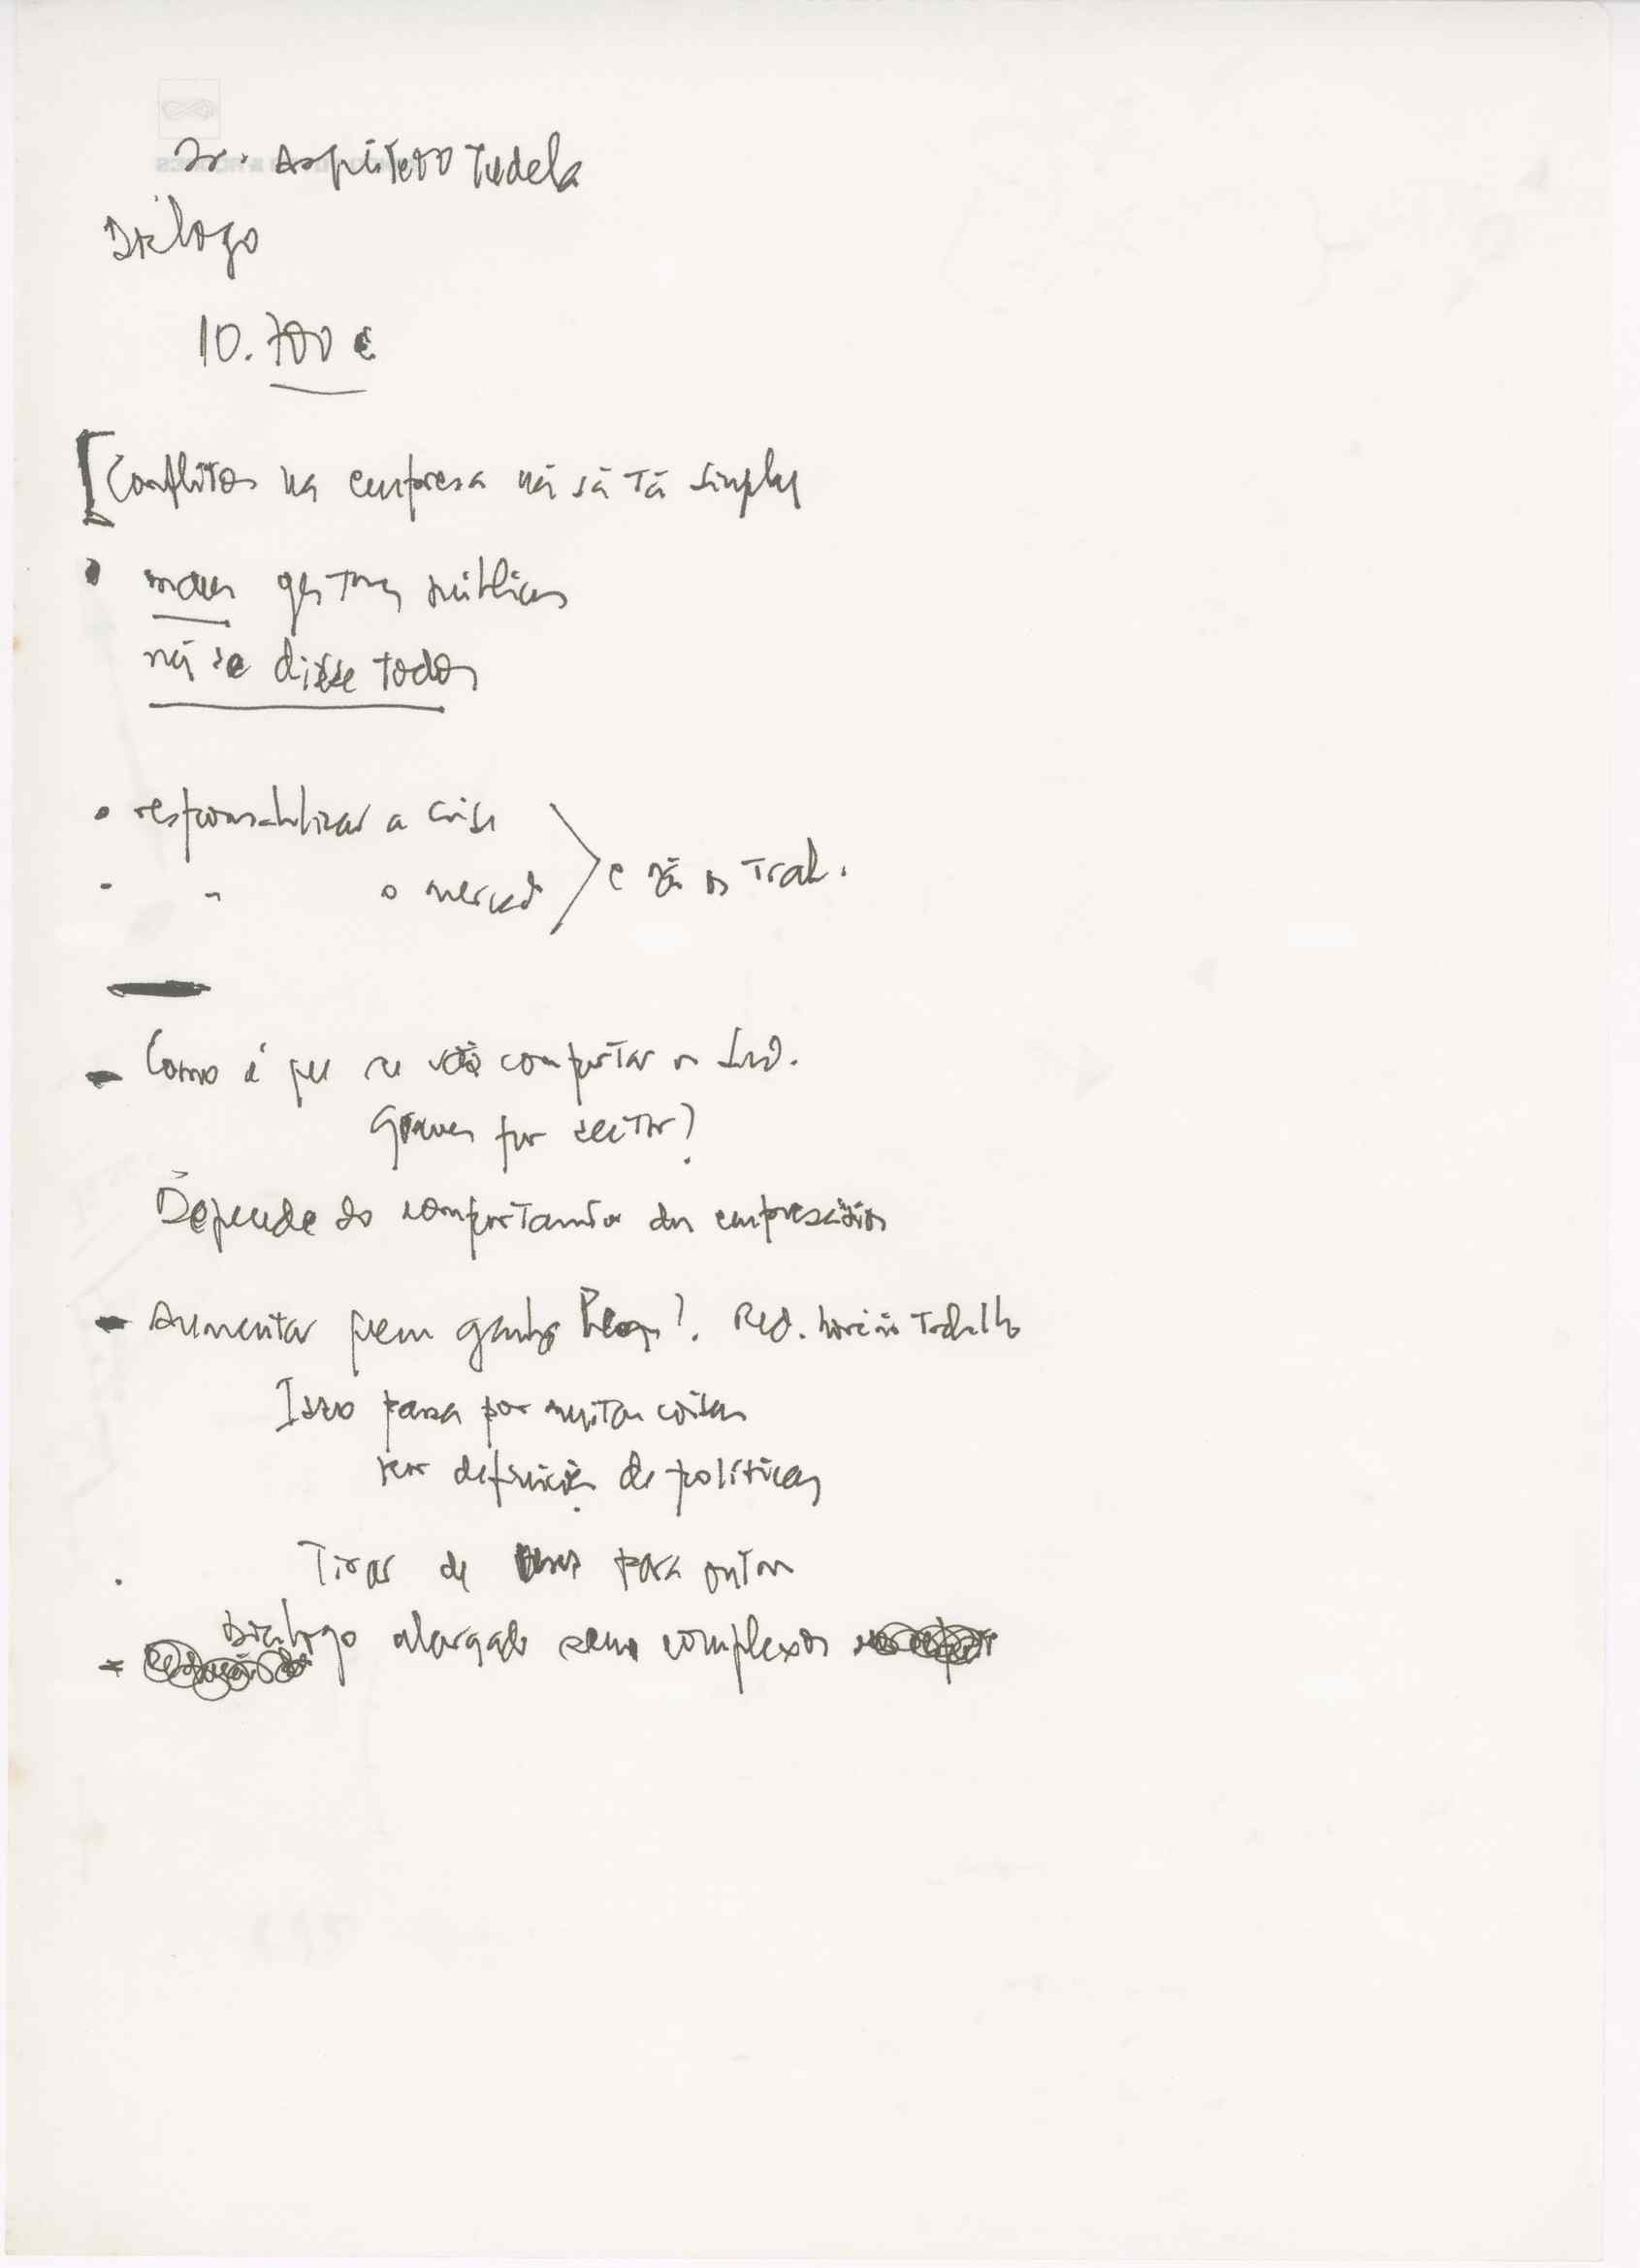 Sr. Arquitecto Tudela
Diálogo
10.700 €
Conflitos na empresa nã sã tã simples
• maus gestores públicos
nã se disse todos
• responsabilizar a crise
- " o mercado e nã os trab.
- Como é que se vão comportar os Sind.
Greves por sector?
Depende do comportamento dos empresários
- Aumentar quem ganha ? Red. horário trabalho
Isso passa por muitas coisas
definição de políticas
Tirar de uns para outros
Diálogo alargado sem complexos